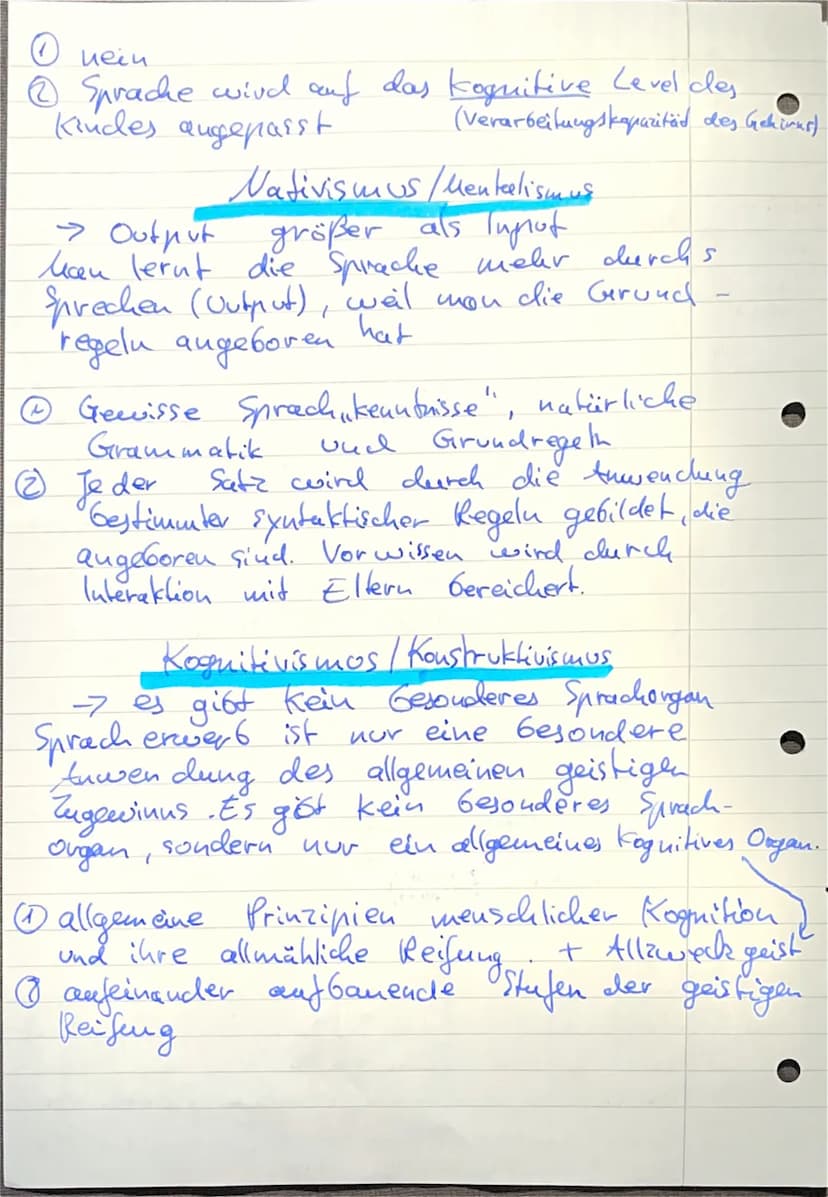 ① nein
② Sprache wird auf das kognitive Level des
Kindes angepasst (Verarbeitungskapazität des Gehirns)
Nativismus/Mentalismus
→ Output größer als Input
Man lernt die Sprache mehr durchs
Sprechen (Output), weil man die Grund-
regeln angeboren hat
① Gewisse Sprach„kenntnisse", natürliche
Grammatik und Grundregeln
② Jeder Satz wird durch die Anwendung
bestimmter syntaktischer Regeln gebildet, die
angeboren sind. Vorwissen wird durch
Interaktion mit Eltern bereichert.
Kognitivismos/Konstruktivismus
→ es gibt kein besonderes Sprachorgan
Spracherwerb ist nur eine besondere
Anwendung des allgemeinen geistigen
Zugewinns. Es gibt kein besonderes Sprach-
organ, sondern nur ein allgemeines kognitives Organ.
① allgemeine Prinzipien menschlicher Kognition
und ihre allmähliche Reifung. + Allzweckgeist
② aufeinander aufbauende Stufen der geistigen
Reifung